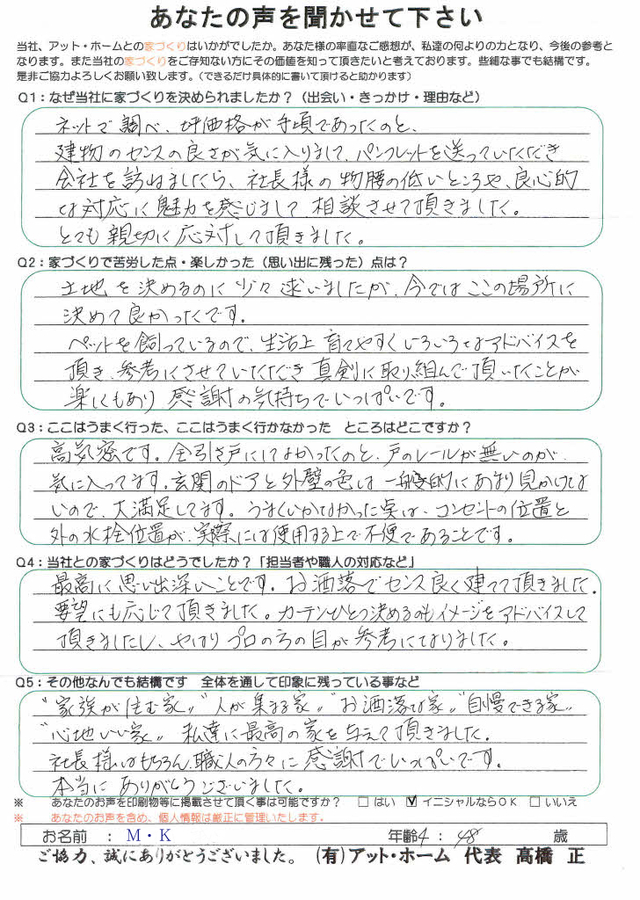 あなたの声を聞かせて下さい
当社、アット・ホームとの家づくりはいかがでしたか。あなた様の率直なご感想が、私達の何よりの力となり、今後の参考と
なります。また当社の家づくりをご存知ない方にその価値を知って頂きたいと考えております。些細な事でも結構です。
是非ご協力よろしくお願い致します。（できるだけ具体的に書いて頂けると助かります）
Q1：なぜ当社に家づくりを決められましたか？（出会い・きっかけ・理由など）
ネットで調べ、坪価格が手頃であったのと、
建物のセンスの良さが気に入りまして、パンフレットを送っていただき
会社を訪ねましたら、社長様の物腰の低いところや、良心的
な対応に魅力を感じまして、相談させて頂きました。
とても親切に応対して頂きました。
Q2：家づくりで苦労した点・楽しかった（思い出に残った）点は？
土地を決めるのに少々迷いましたが、今ではここの場所に
決めて良かったです。
ペットを飼っているので、生活上育てやすくいろいろなアドバイスを
頂き、参考にさせていただき真剣に取り組んで頂いたことが
楽しくもあり感謝の気持ちでいっぱいです。
Q3：ここはうまく行った、ここはうまく行かなかった　ところはどこですか？
高気密です。全引き戸にしてなかったのと、戸のレールが無いのが、
気に入ってます。玄関のドアと外壁の色は一般的にあまり見かけな
いので、大満足してます。うまくいかなかった点は、コンセントの位置と
外の水栓位置が、実際には使用する上で不便であることです。
Q4：当社との家づくりはどうでしたか？「担当者や職人の対応など」
最高に思い出深いことです。お洒落でセンス良く建てて頂きました。
要望にも応じて頂きました。カーテンひとつ決めるのもイメージをアドバイスして
頂きましたし、やはりプロの方の目が参考になりました。
Q5：その他なんでも結構です　全体を通して印象に残っている事など
"家族が住む家" "人が集まる家" "お洒落な家" "自慢できる家"
"心地いい家" 私達に最高の家を与えて頂きました。
社長様はもちろん、職人の方々に感謝でいっぱいです。
本当にありがとうございました。
※　あなたのお声を印刷物等に掲載させて頂く事は可能ですか？　□はい　☑イニシャルならOK　□いいえ
※　あなたのお声を含め、個人情報は厳正に管理いたします。
お名前　：　M・K　年齢4：48　歳
ご協力、誠にありがとうございました。（有）アット・ホーム　代表　髙橋　正